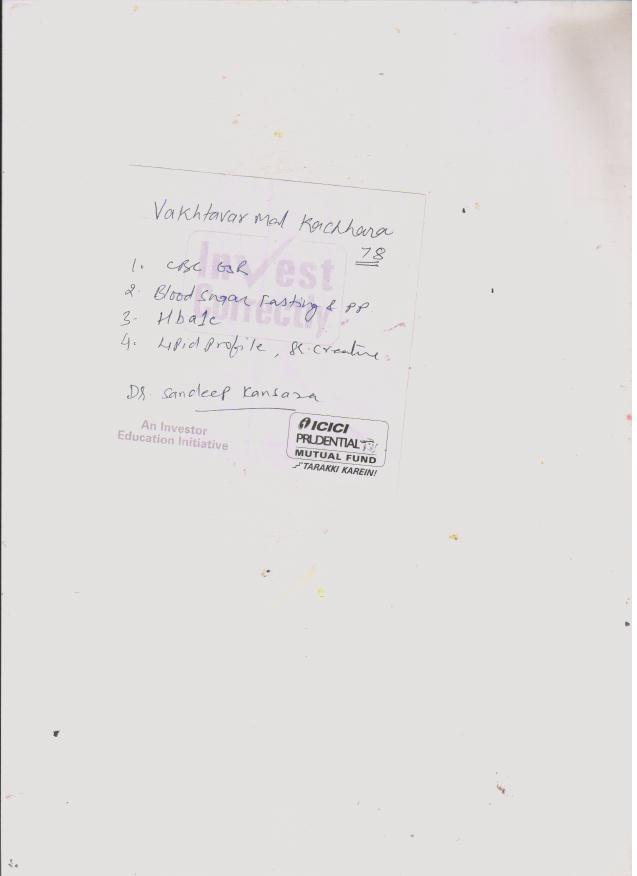 Vakhtavar Mal Kachhara
78
Invest
Correctly
1. CBC ESR
2. Blood Sugar Fasting & PP
3. Hba1c
4. Lipid profile, Sr. Creatine
Dr. Sandeep Kansara
An Investor
Education Initiative
ICICI
PRUDENTIAL
MUTUAL FUND
TARAKKI KAREIN!